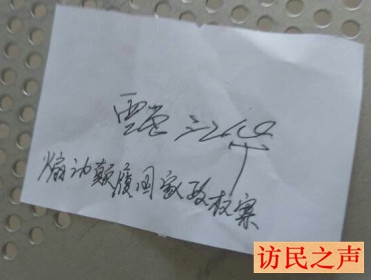 甄江华
煽动颠覆国家政权案
访民之声